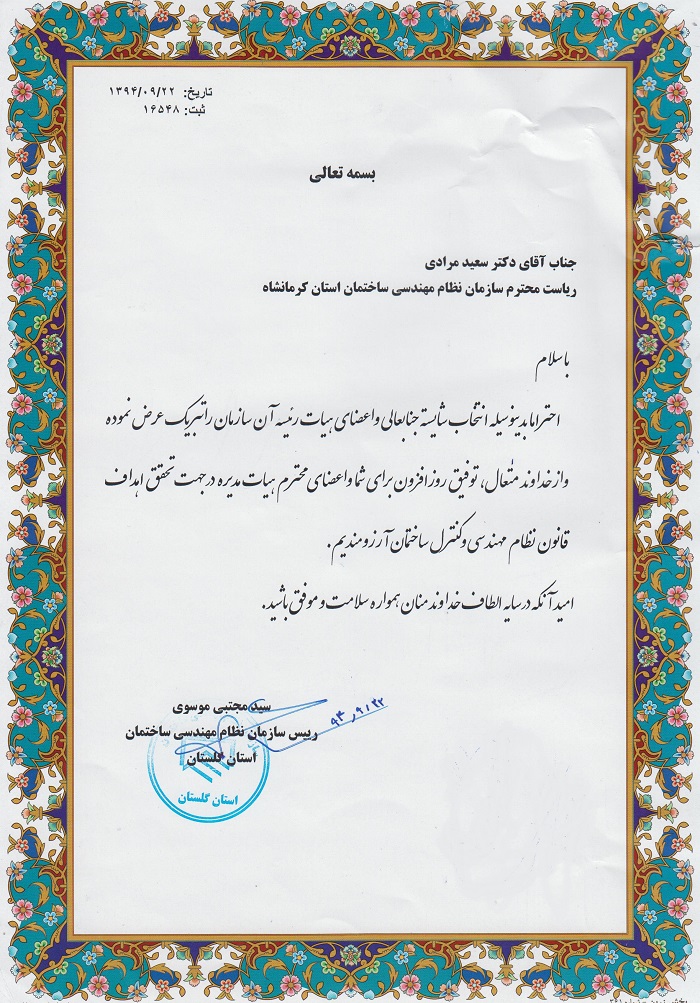 تاریخ: ۱۳۹۴/۰۹/۲۲
ثبت: ۱۶۵۴۸
بسمه تعالی
جناب آقای دکتر سعید مرادی
ریاست محترم سازمان نظام مهندسی ساختمان استان کرمانشاه
با سلام
احتراما بدینوسیله انتخاب شایسته جنابعالی و اعضای هیات رئیسه آن سازمان را تبریک عرض نموده
و از خداوند متعال، توفیق روز افزون برای شما و اعضای محترم هیات مدیره در جهت تحقق اهداف
قانون نظام مهندسی و کنترل ساختمان آرزومندیم.
امید آنکه در سایه الطاف خداوند منان همواره سلامت و موفق باشید.
سید مجتبی موسوی
۹۴/۹/۲۲
رییس سازمان نظام مهندسی ساختمان
استان گلستان
استان گلستان